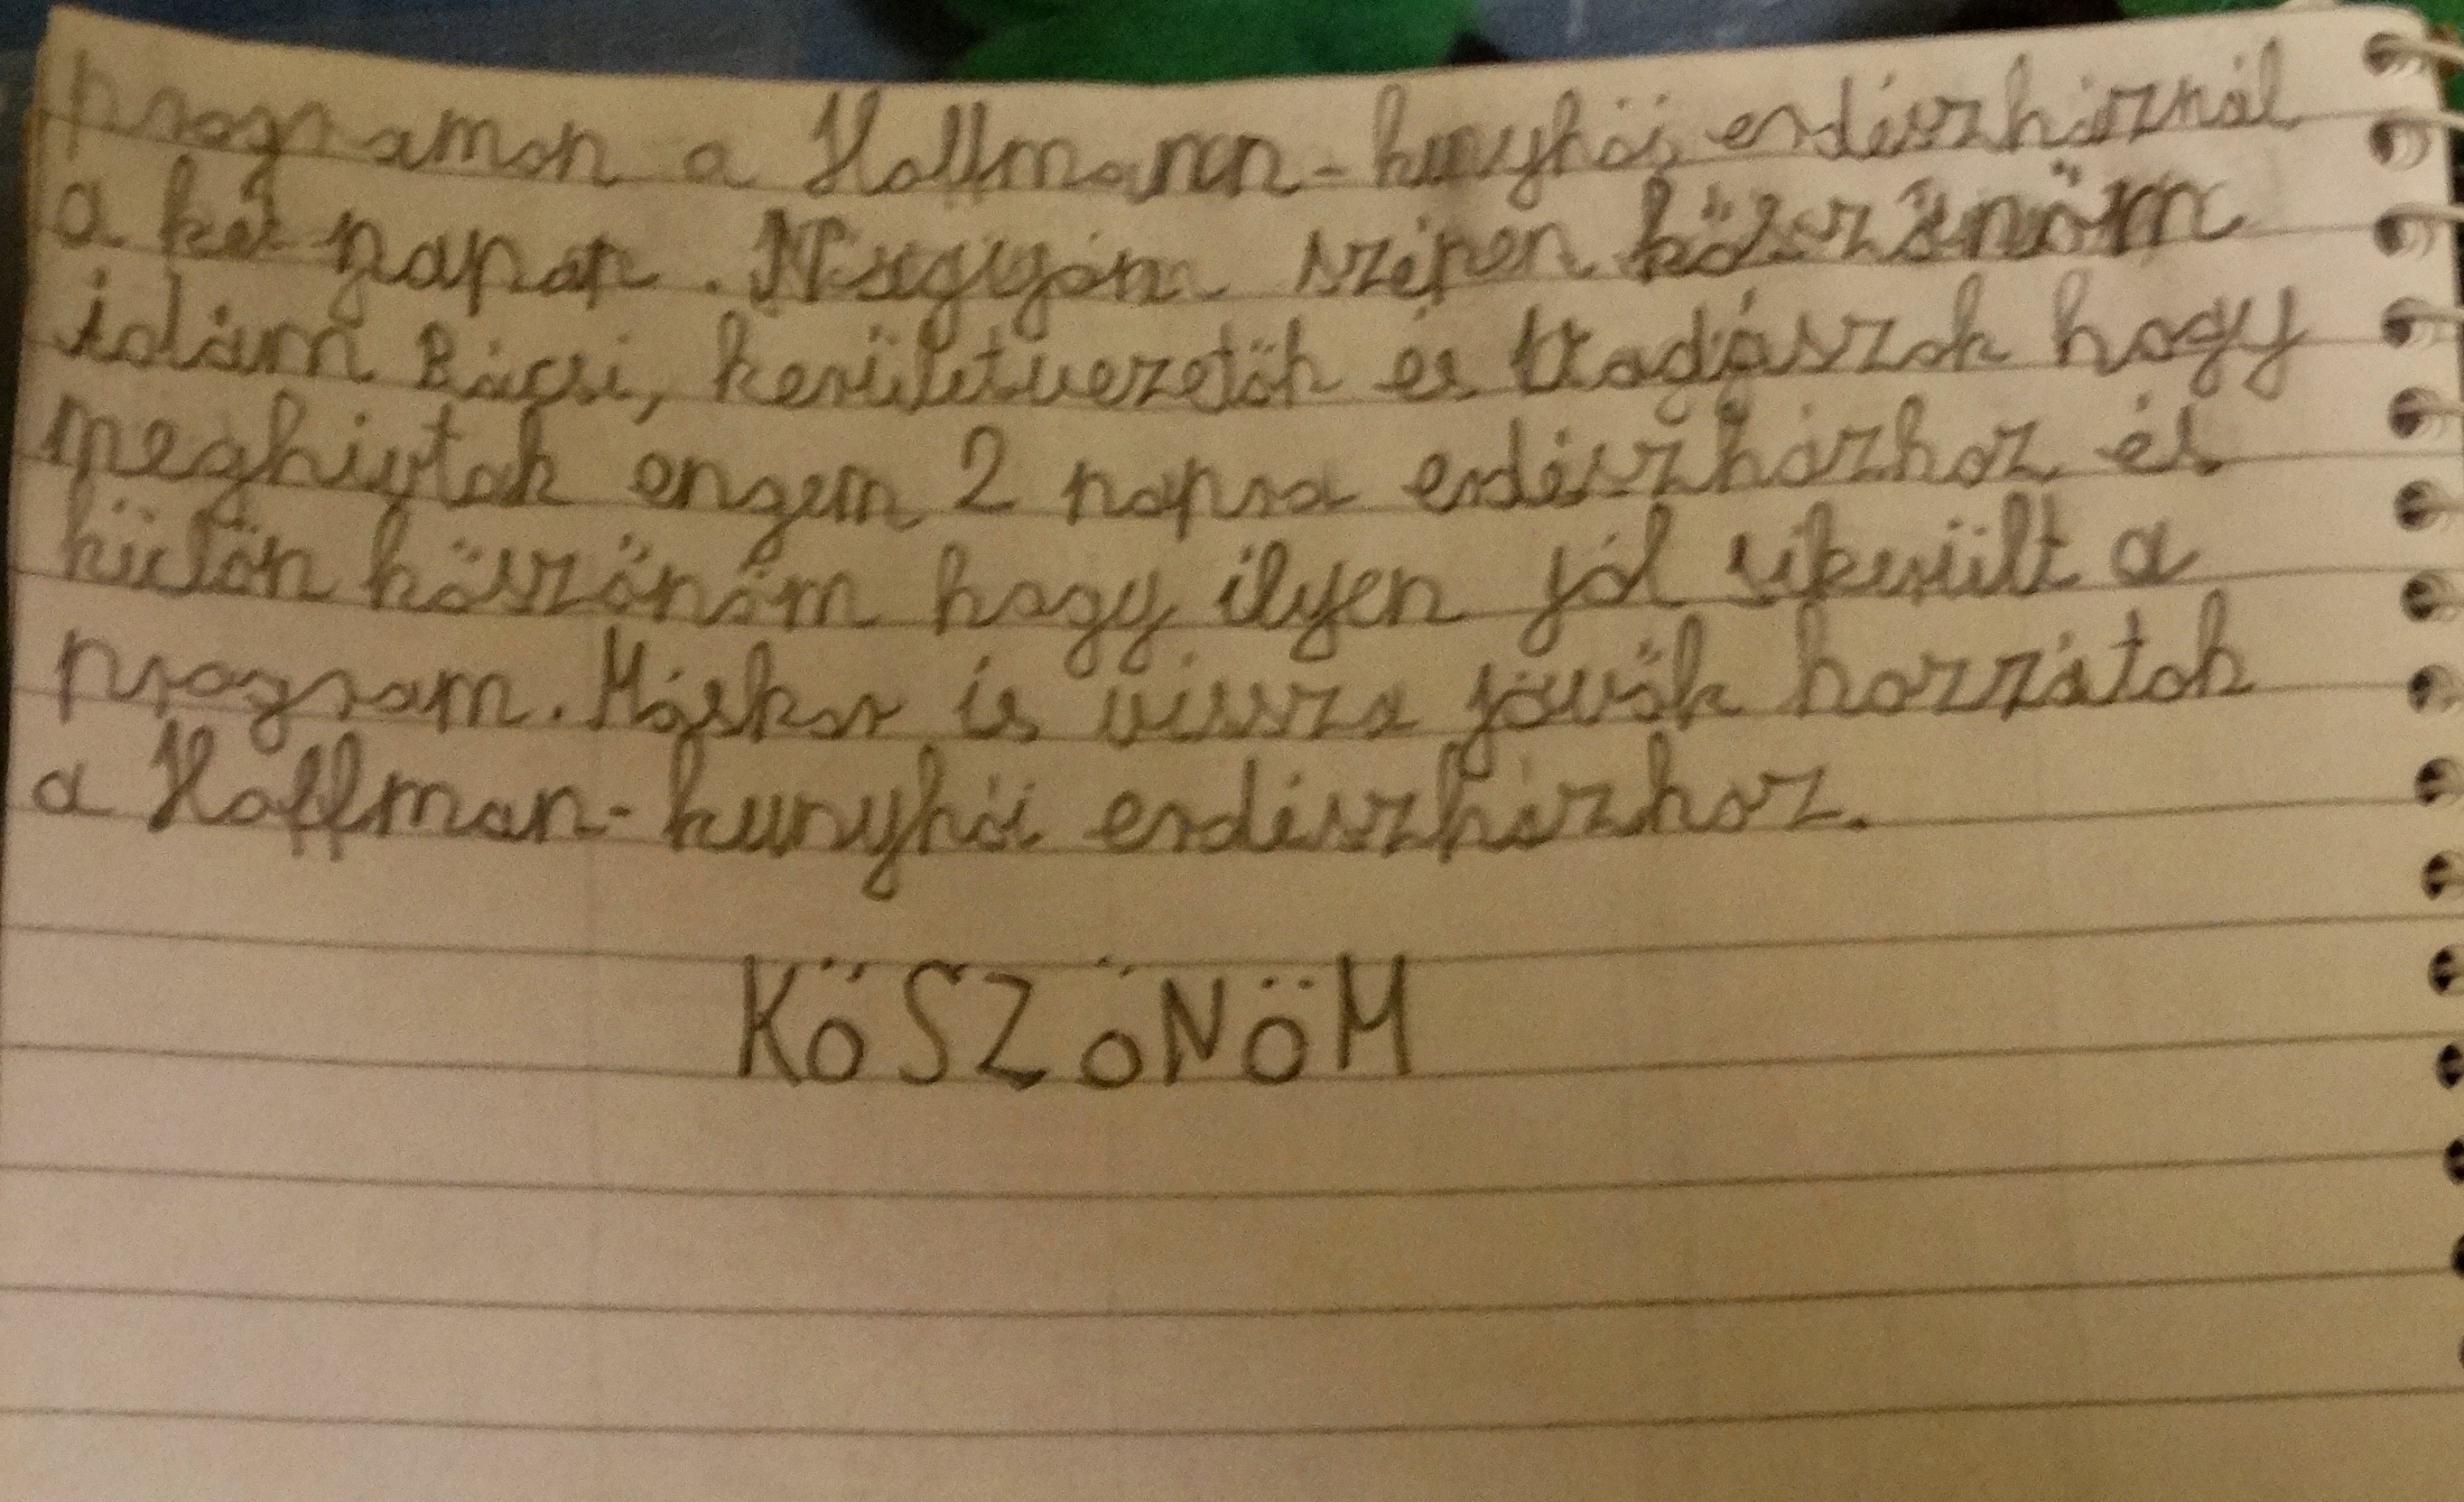 programon a Hoffmann-kunyhói erdészháznál
a két napon. Nagyon szépen köszönöm
Ádám Bácsi, kerületvezetők és Vadászok hogy
meghivtak engem 2 napra erdészházhoz és
külön köszönöm hogy ilyen jól sikerült a
program. Máskor is vissza jövök hozzátok
a Hoffman-kunyhói erdészházhoz.
KÖSZÖNÖM